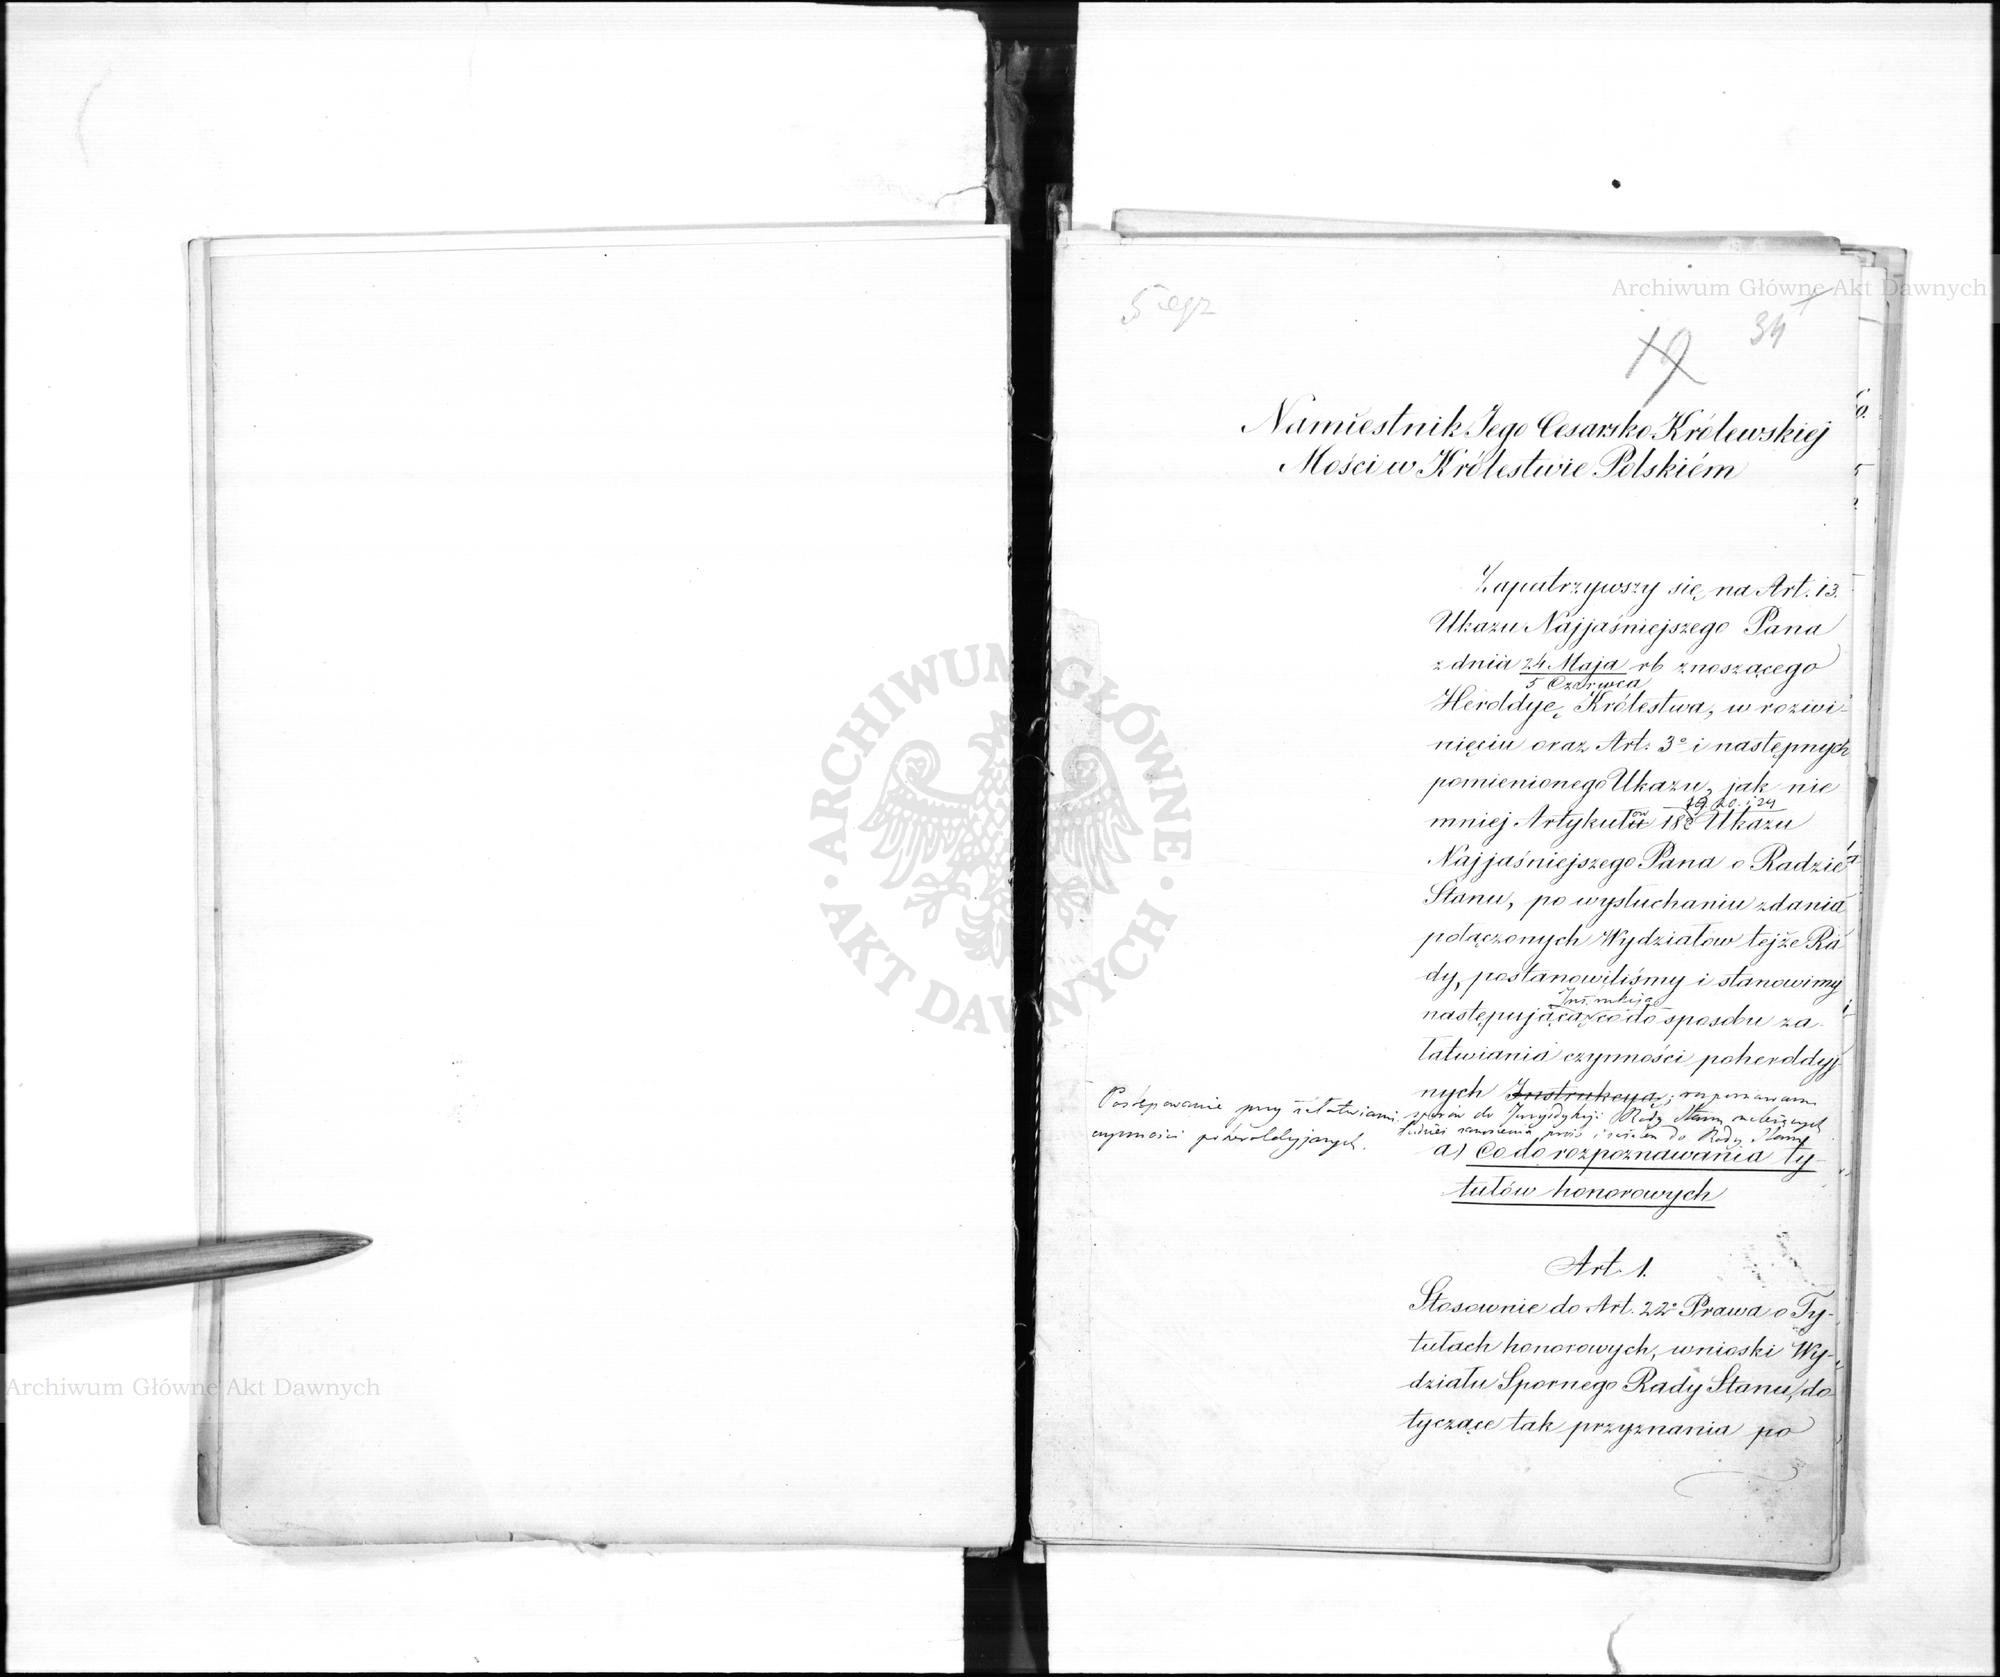 Archiwum Główne Akt Dawnych
5 egz
19
34
Namiestnik Jego Cesarsko-Królewskiej
Mości w Królestwie Polskiém
Zapatrzywszy się na Art. 13.
Ukazu Najjaśniejszego Pana
z dnia 24 Maja rb znoszącego
5 Czerwca
Heroldyę Królestwa, w rozwi-
nięciu oraz Art: 3º i następnych
pomienionego Ukazu, jak nie
19. 20. i 24
mniej Artykułów 18 Ukazu
Najjaśniejszego Pana o Radzie
Stanu, po wysłuchaniu zdania
połączonych Wydziałów tejże Ra-
dy, postanowiliśmy i stanowimy
Instrukcją
następującą co do sposobu za-
łatwiania czynności poheroldyj-
nych Instrukcyą,
sporów do Jurysdykcji Rady Stanu należących
Rady Stanu
Postępowanie przy załatwianiu
czynności poheroldyjnych.
a) Co do rozpoznawania ty-
tułów honorowych
Art. 1.
Stosownie do Art. 22º Prawa o Ty-
tułach honorowych, wnioski Wy-
działu Spornego Rady Stanu, do-
tyczące tak przyznania po
ARCHIWUM GŁÓWNE
AKT DAWNYCH
Archiwum Główne Akt Dawnych